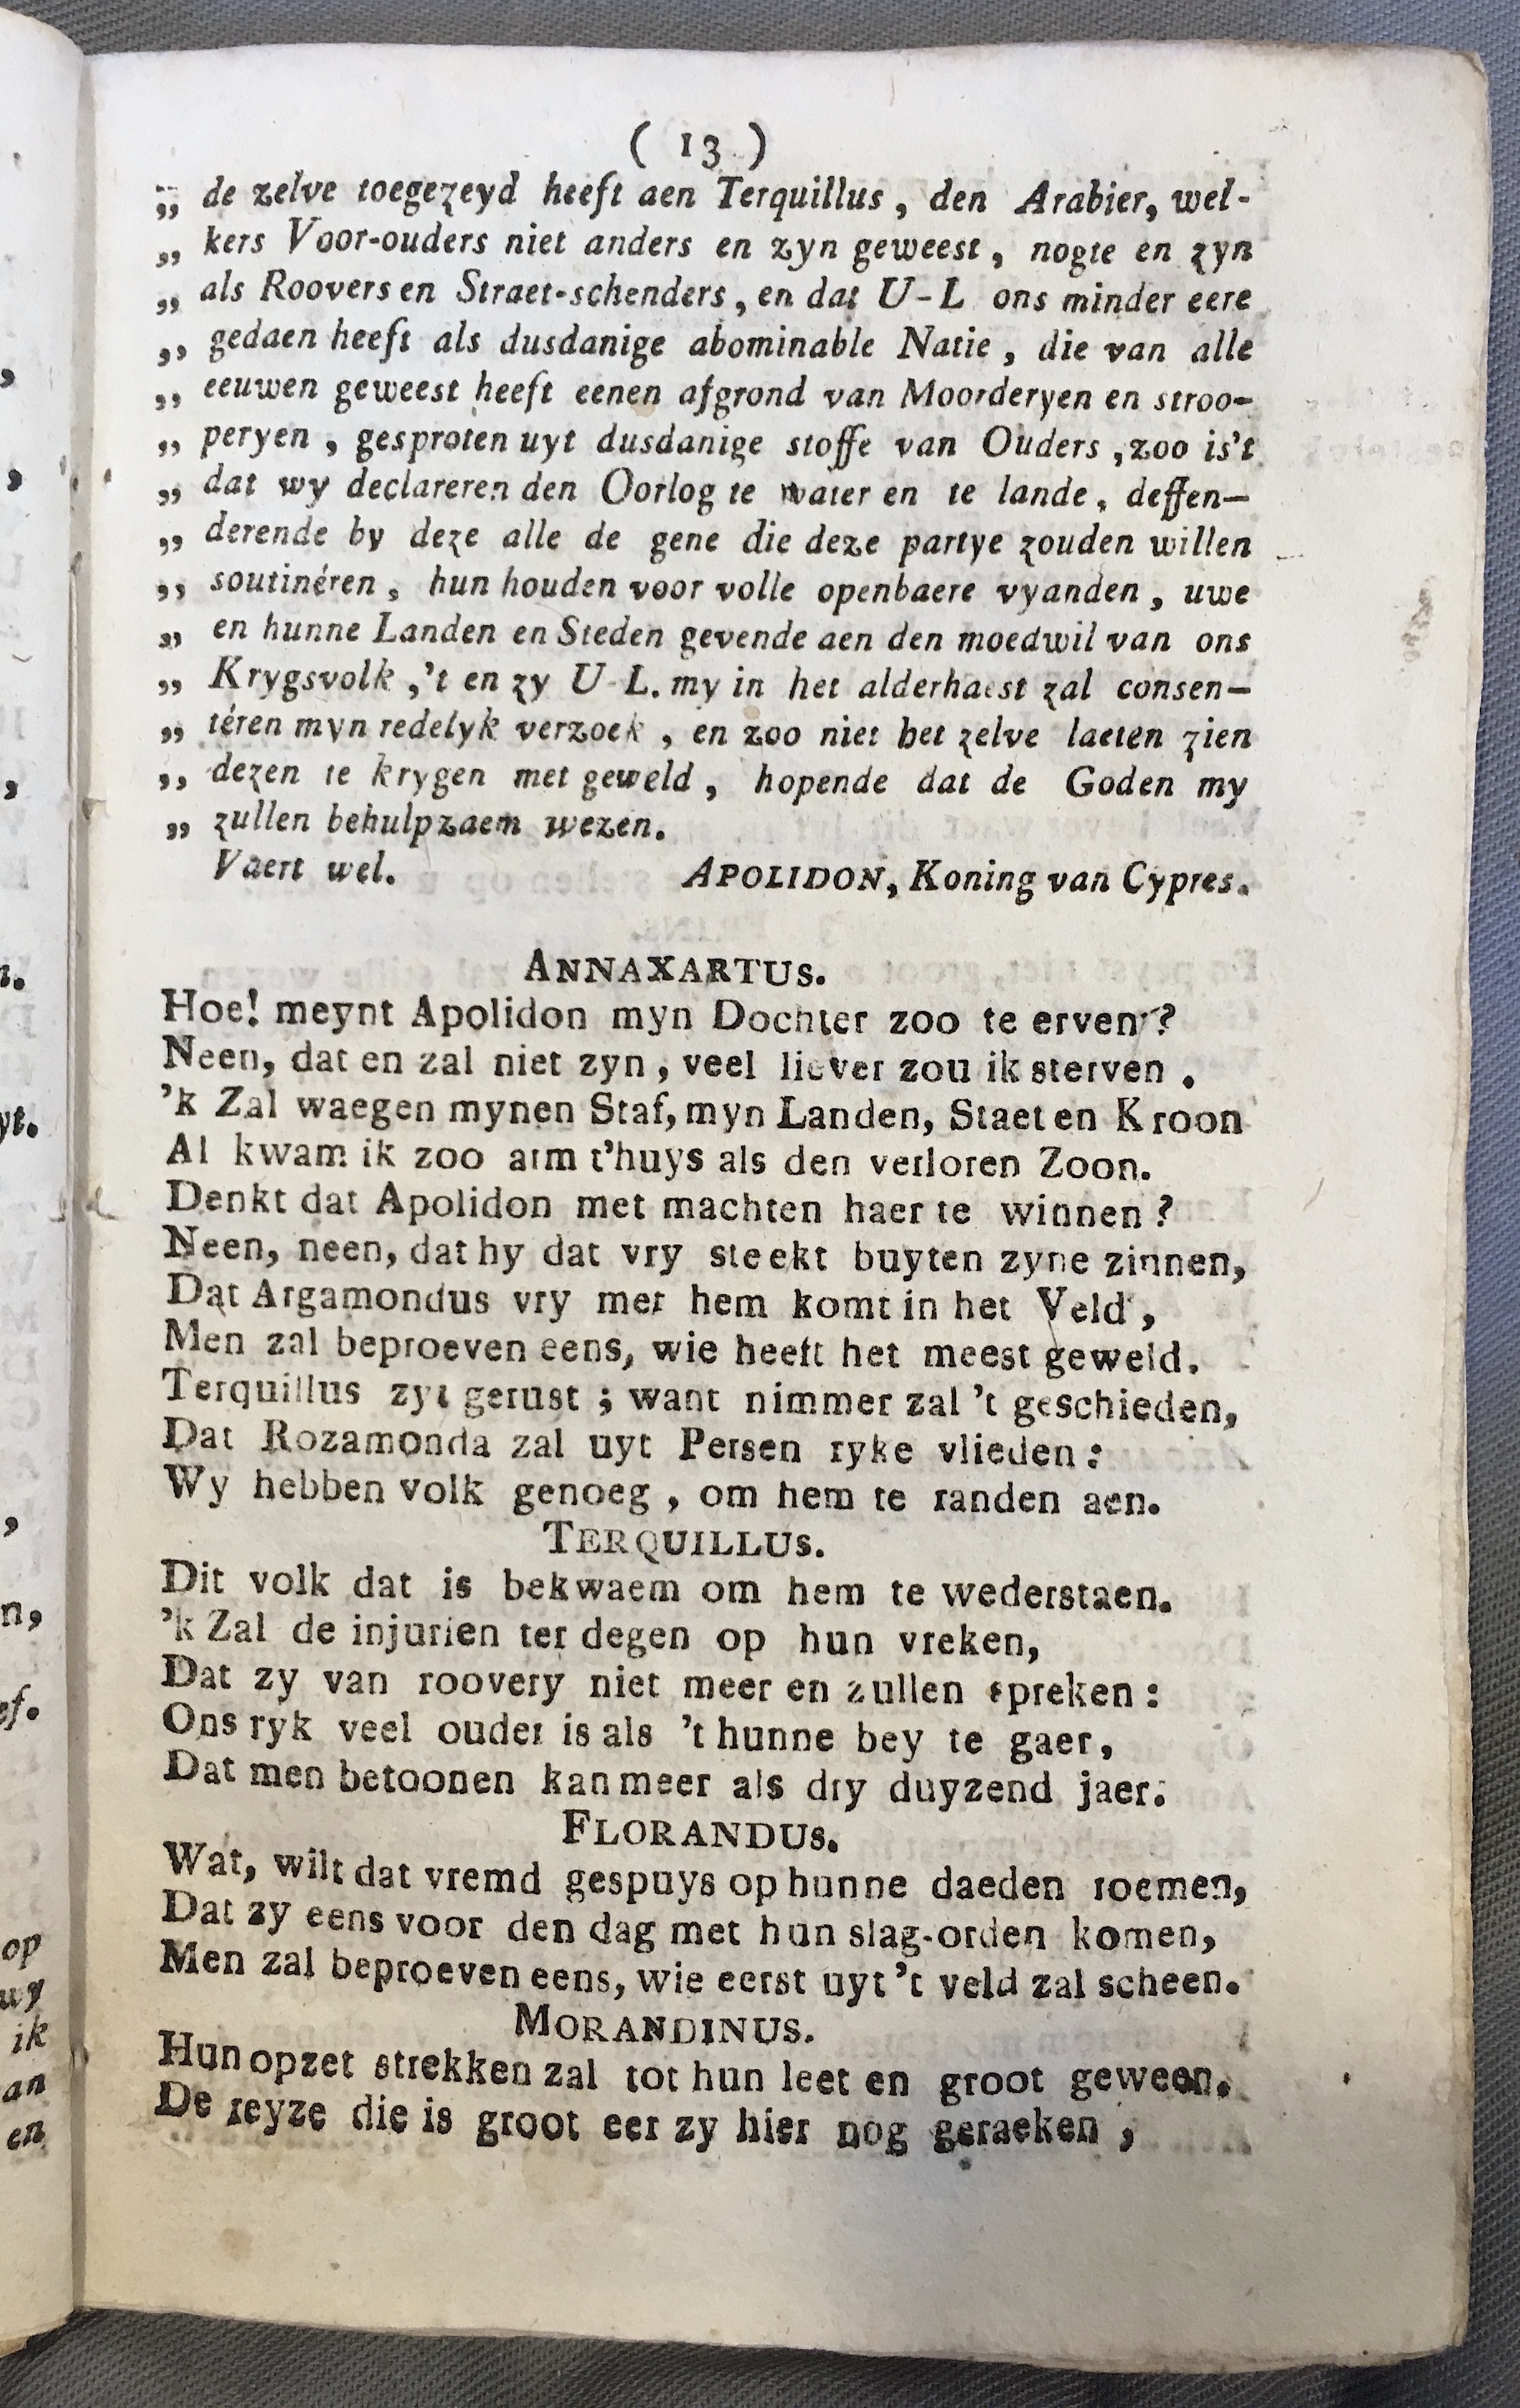 ( 13 )
„ de zelve toegezeyd heeft aen Terquillus, den Arabier, wel-
„ kers Voor-ouders niet anders en zyn geweest, nogte en zyn
„ als Roovers en Straet-schenders, en dat U-L ons minder eere
„ gedaen heeft als dusdanige abominable Natie, die van alle
„ eeuwen geweest heeft eenen afgrond van Moorderyen en stroo-
„ peryen, gesproten uyt dusdanige stoffe van Ouders, zoo is't
„ dat wy declareren den Oorlog te water en te lande, deffen-
„ derende by deze alle de gene die deze partye zouden willen
„ soutinéren, hun houden voor volle openbaere vyanden, uwe
„ en hunne Landen en Steden gevende aen den moedwil van ons
„ Krygsvolk, 't en zy U-L. my in het alderhaest zal consen-
„ téren myn redelyk verzoek, en zoo niet het zelve laeten zien
„ dezen te krygen met geweld, hopende dat de Goden my
„ zullen behulpzaem wezen.
Vaert wel. APOLIDON, Koning van Cypres.
ANNAXARTUS.
Hoe! meynt Apolidon myn Dochter zoo te erven?
Neen, dat en zal niet zyn, veel liever zou ik sterven.
'k Zal waegen mynen Staf, myn Landen, Staet en Kroon
Al kwam ik zoo arm t'huys als den verloren Zoon.
Denkt dat Apolidon met machten haer te winnen?
Neen, neen, dat hy dat vry steekt buyten zyne zinnen,
Dat Argamondus vry met hem komt in het Veld,
Men zal beproeven eens, wie heeft het meest geweld.
Terquillus zyt gerust; want nimmer zal 't geschieden,
Dat Rozamonda zal uyt Persen ryke vlieden:
Wy hebben volk genoeg, om hem te randen aen.
TERQUILLUS.
Dit volk dat is bekwaem om hem te wederstaen.
'k Zal de injurien ter degen op hun vreken,
Dat zy van roovery niet meer en zullen spreken:
Ons ryk veel ouder is als 't hunne bey te gaer,
Dat men betoonen kan meer als dry duyzend jaer.
FLORANDUS.
Wat, wilt dat vremd gespuys op hunne daeden roemen,
Dat zy eens voor den dag met hun slag-orden komen,
Men zal beproeven eens, wie eerst uyt 't veld zal scheen.
MORANDINUS.
Hun opzet strekken zal tot hun leet en groot geween.
De reyze die is groot eer zy hier nog geraeken,